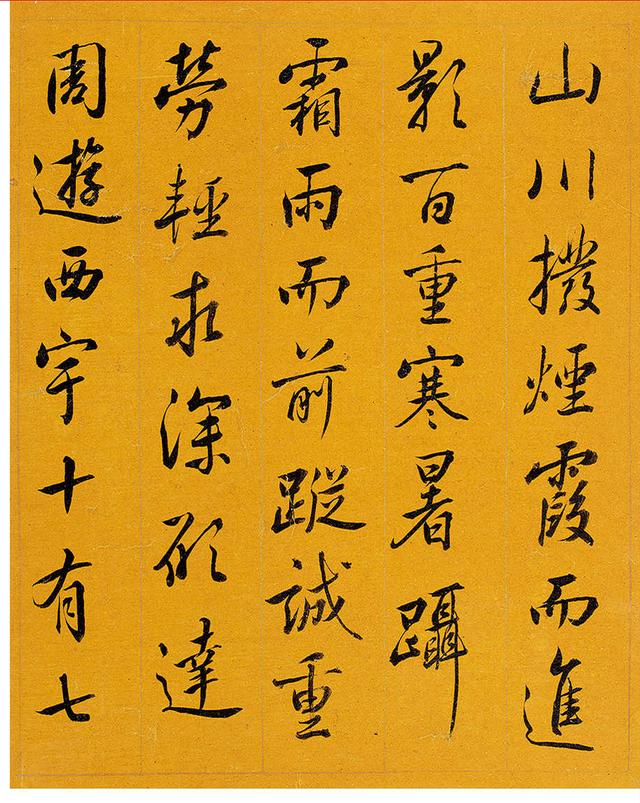 山川撥煙霞而進
影百重寒暑躡
霜雨而前蹤誠重
勞輕求深願達
周遊西宇十有七